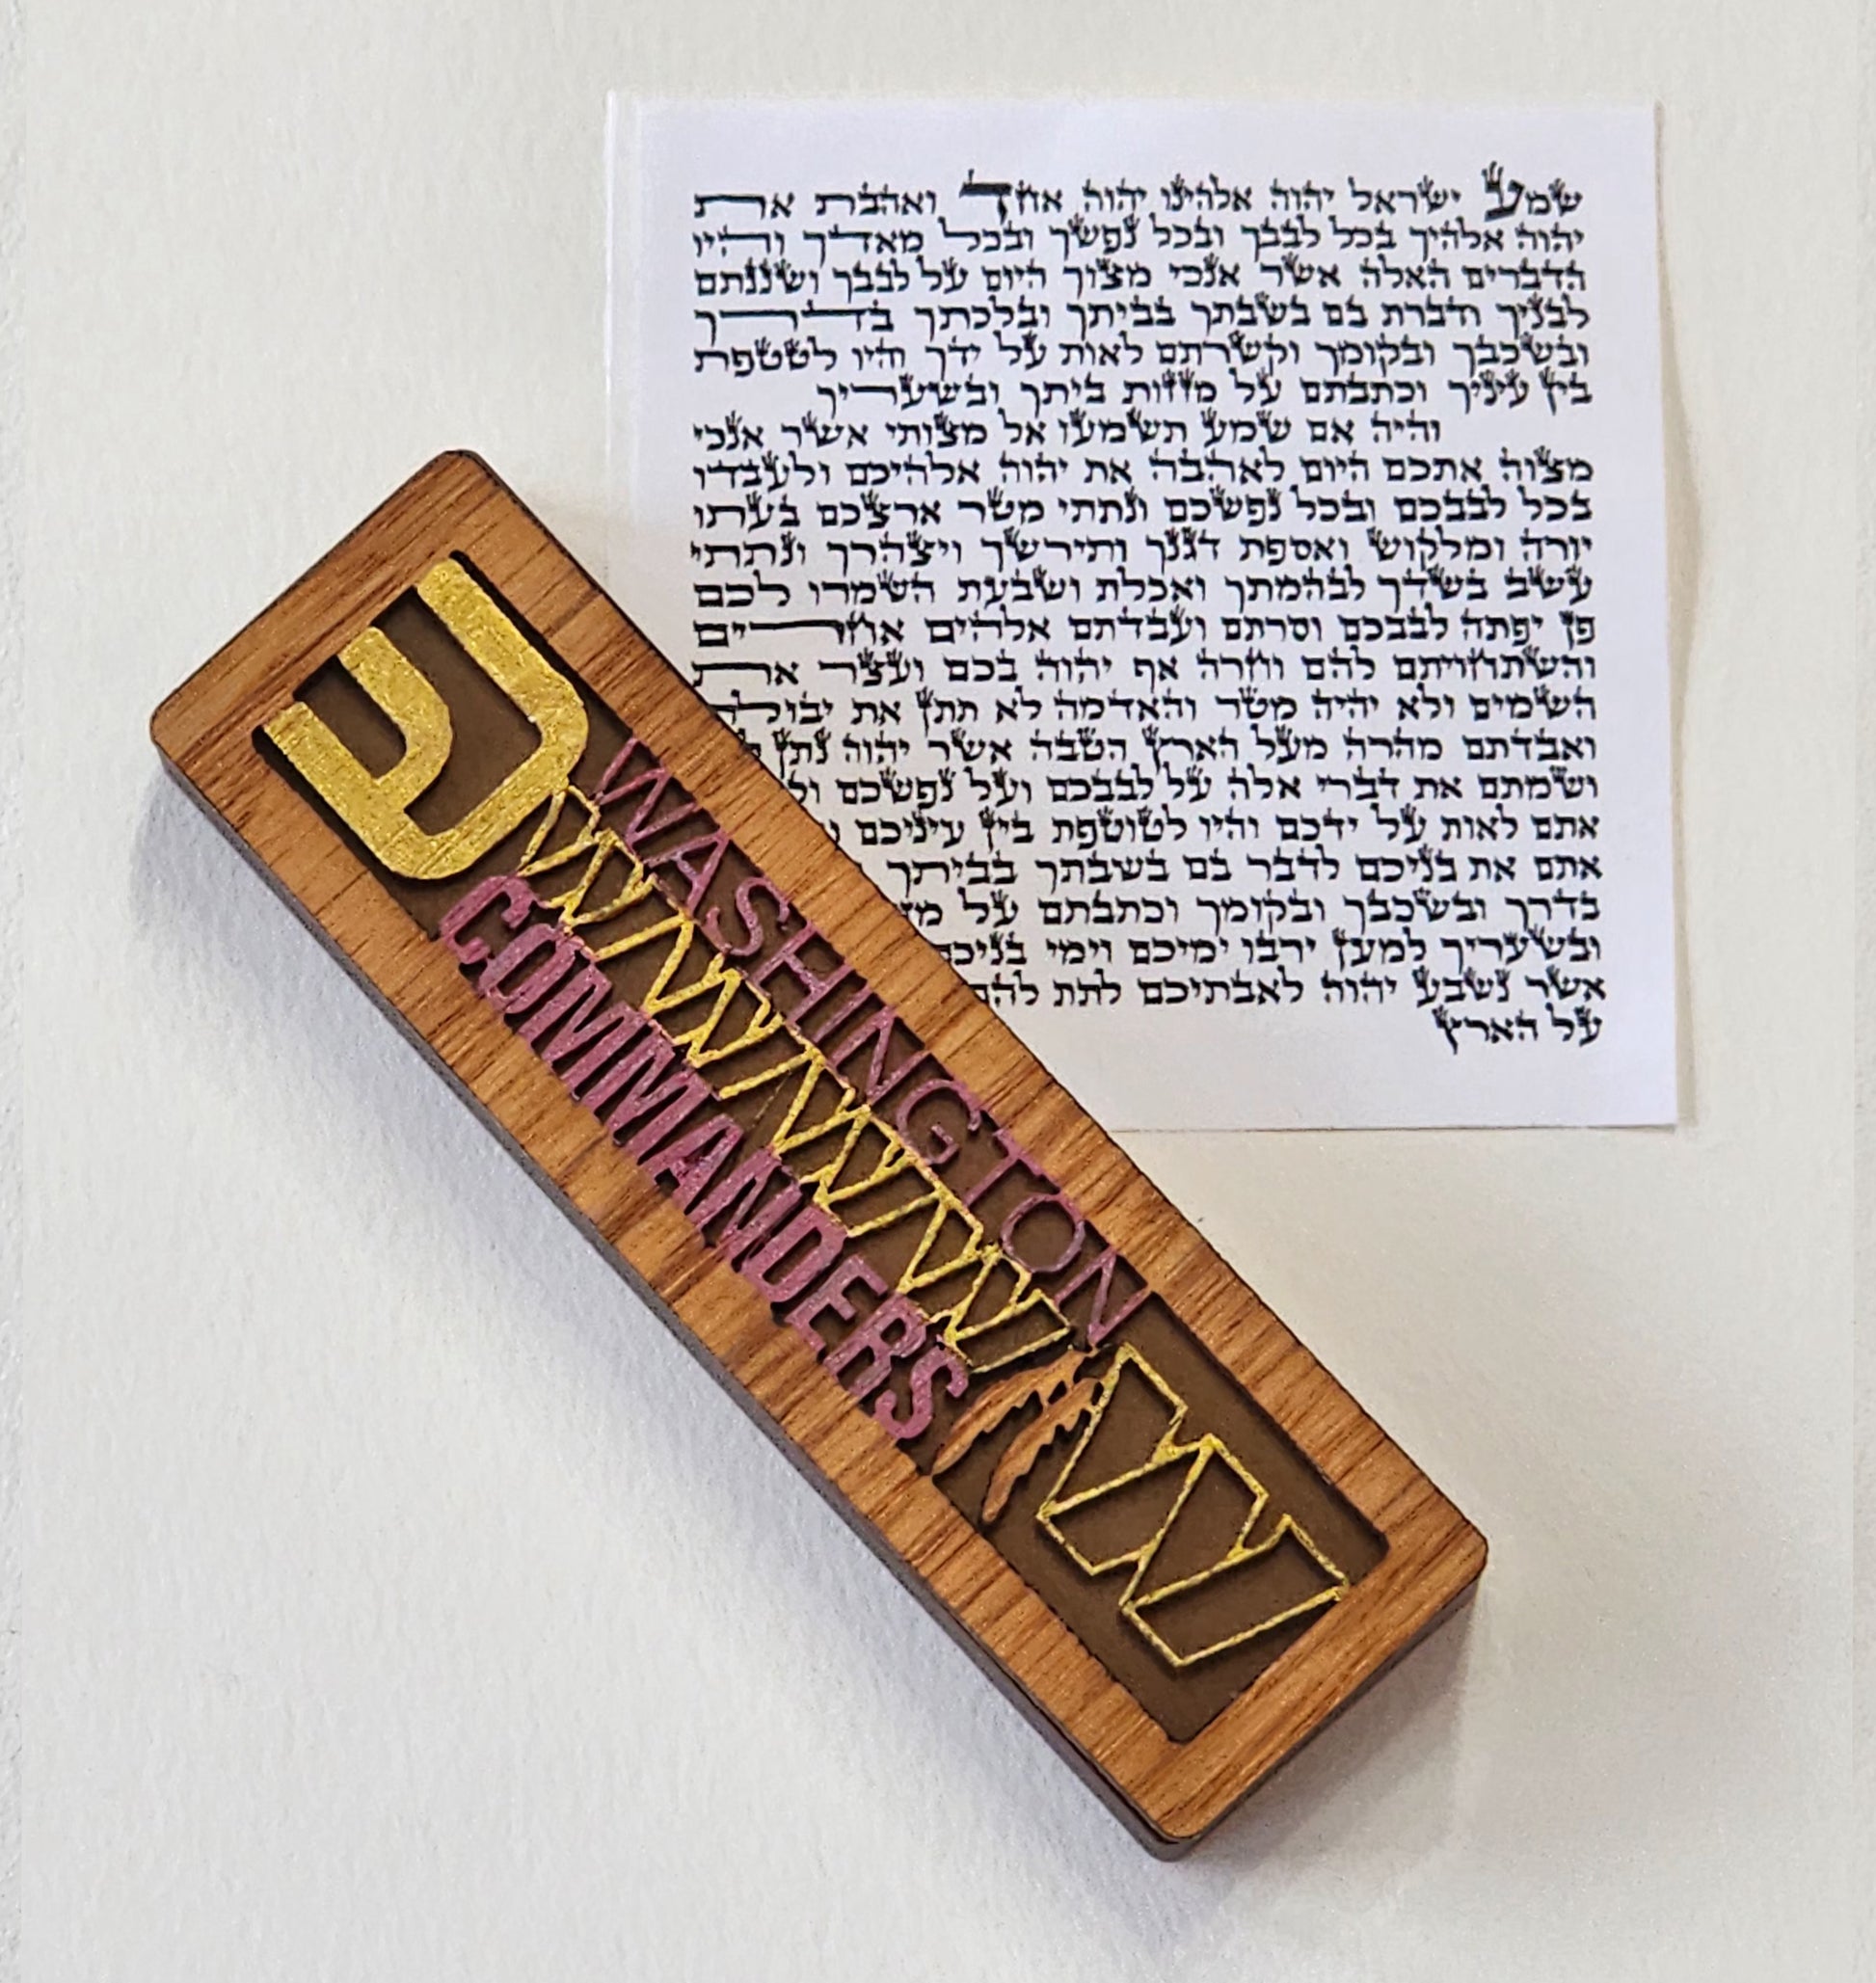 שמע ישראל יהוה אלהינו יהוה אחד ואהבת את
יהוה אלהיך בכל לבבך ובכל נפשך ובכל מאדך והיו
הדברים האלה אשר אנכי מצוך היום על לבבך ושננתם
לבניך ודברת בם בשבתך בביתך ובלכתך בדרך
ובשכבך ובקומך וקשרתם לאות על ידך והיו לטטפת
בין עיניך וכתבתם על מזזות ביתך ובשעריך
והיה אם שמע תשמעו אל מצותי אשר אנכי
מצוה אתכם היום לאהבה את יהוה אלהיכם ולעבדו
בכל לבבכם ובכל נפשכם ונתתי מטר ארצכם בעתו
יורה ומלקוש ואספת דגנך ותירשך ויצהרך ונתתי
עשב בשדך לבהמתך ואכלת ושבעת השמרו לכם
פן יפתה לבבכם וסרתם ועבדתם אלהים אחרים
והשתחויתם להם וחרה אף יהוה בכם ועצר את
השמים ולא יהיה מטר והאדמה לא תתן את יבולה
ואבדתם מהרה מעל הארץ הטבה אשר יהוה נתן
ושמתם את דברי אלה על לבבכם ועל נפשכם
אתם לאות על ידכם והיו לטוטפת בין עיניכם
אתם את בניכם לדבר בם בשבתך בביתך
בדרך ובשכבך ובקומך וכתבתם על
ובשעריך למען ירבו ימיכם וימי בניכם
אשר נשבע יהוה לאבתיכם לתת להם
על הארץ
ש
WASHINGTON
W W W W W
COMMANDERS
W